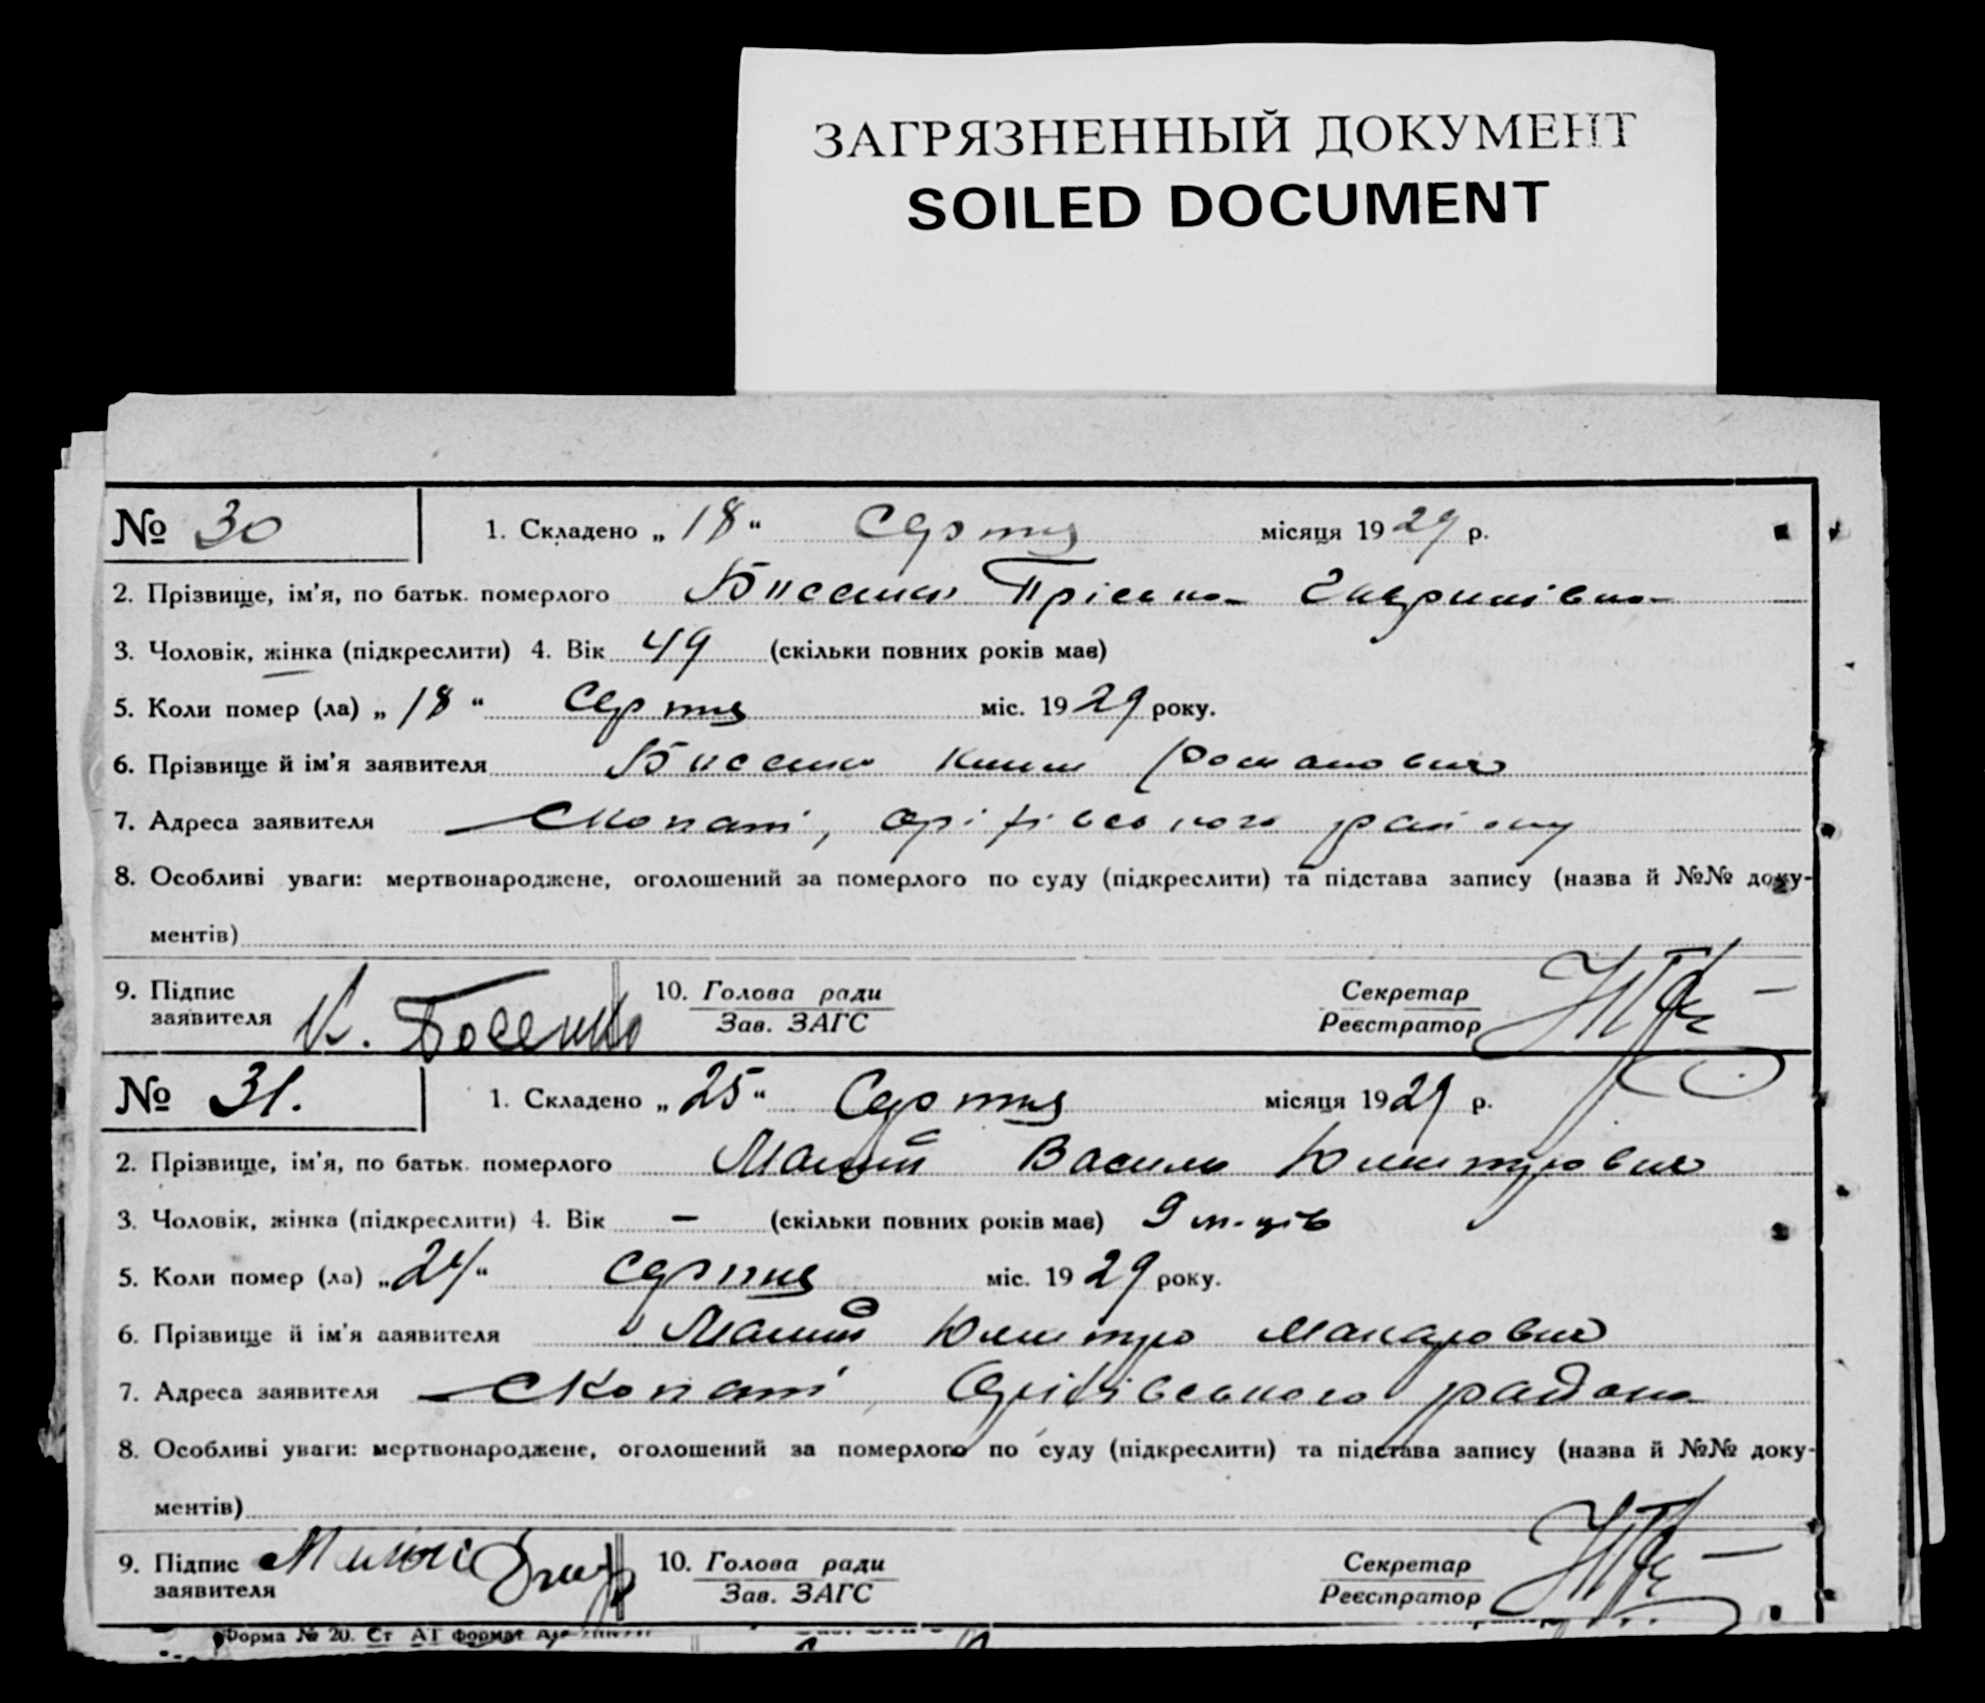 ЗАГРЯЗНЕННЫЙ ДОКУМЕНТ
SOILED DOCUMENT
№ 30 1. Складено „ 18 “ Серпня місяця 1929 р.
2. Прізвище, ім'я, по батьк. померлого
3. Чоловік, жінка (підкреслити) 4. Вік 49 (скільки повних років має)
5. Коли помер (ла) „ 18 “ Серпня міс. 1929 року.
6. Прізвище й ім'я заявителя Романович
7. Адреса заявителя Скопані, району
8. Особливі уваги: мертвонароджене, оголошений за померлого по суду (підкреслити) та підстава запису (назва й №№ доку-
ментів)
9. Підпис заявителя К. 10. Голова ради Зав. ЗАГС Секретар Реєстратор
№ 31. 1. Складено „ 25 “ Серпня місяця 1929 р.
2. Прізвище, ім'я, по батьк. померлого Малий Василь Юхимович
3. Чоловік, жінка (підкреслити) 4. Вік – (скільки повних років має) 9 м-ців
5. Коли помер (ла) „ 24 “ Серпня міс. 1929 року.
6. Прізвище й ім'я заявителя Малий Макарович
7. Адреса заявителя Скопані району
8. Особливі уваги: мертвонароджене, оголошений за померлого по суду (підкреслити) та підстава запису (назва й №№ доку-
ментів)
9. Підпис заявителя 10. Голова ради Зав. ЗАГС Секретар Реєстратор
Форма № 20. Ст АТ формат